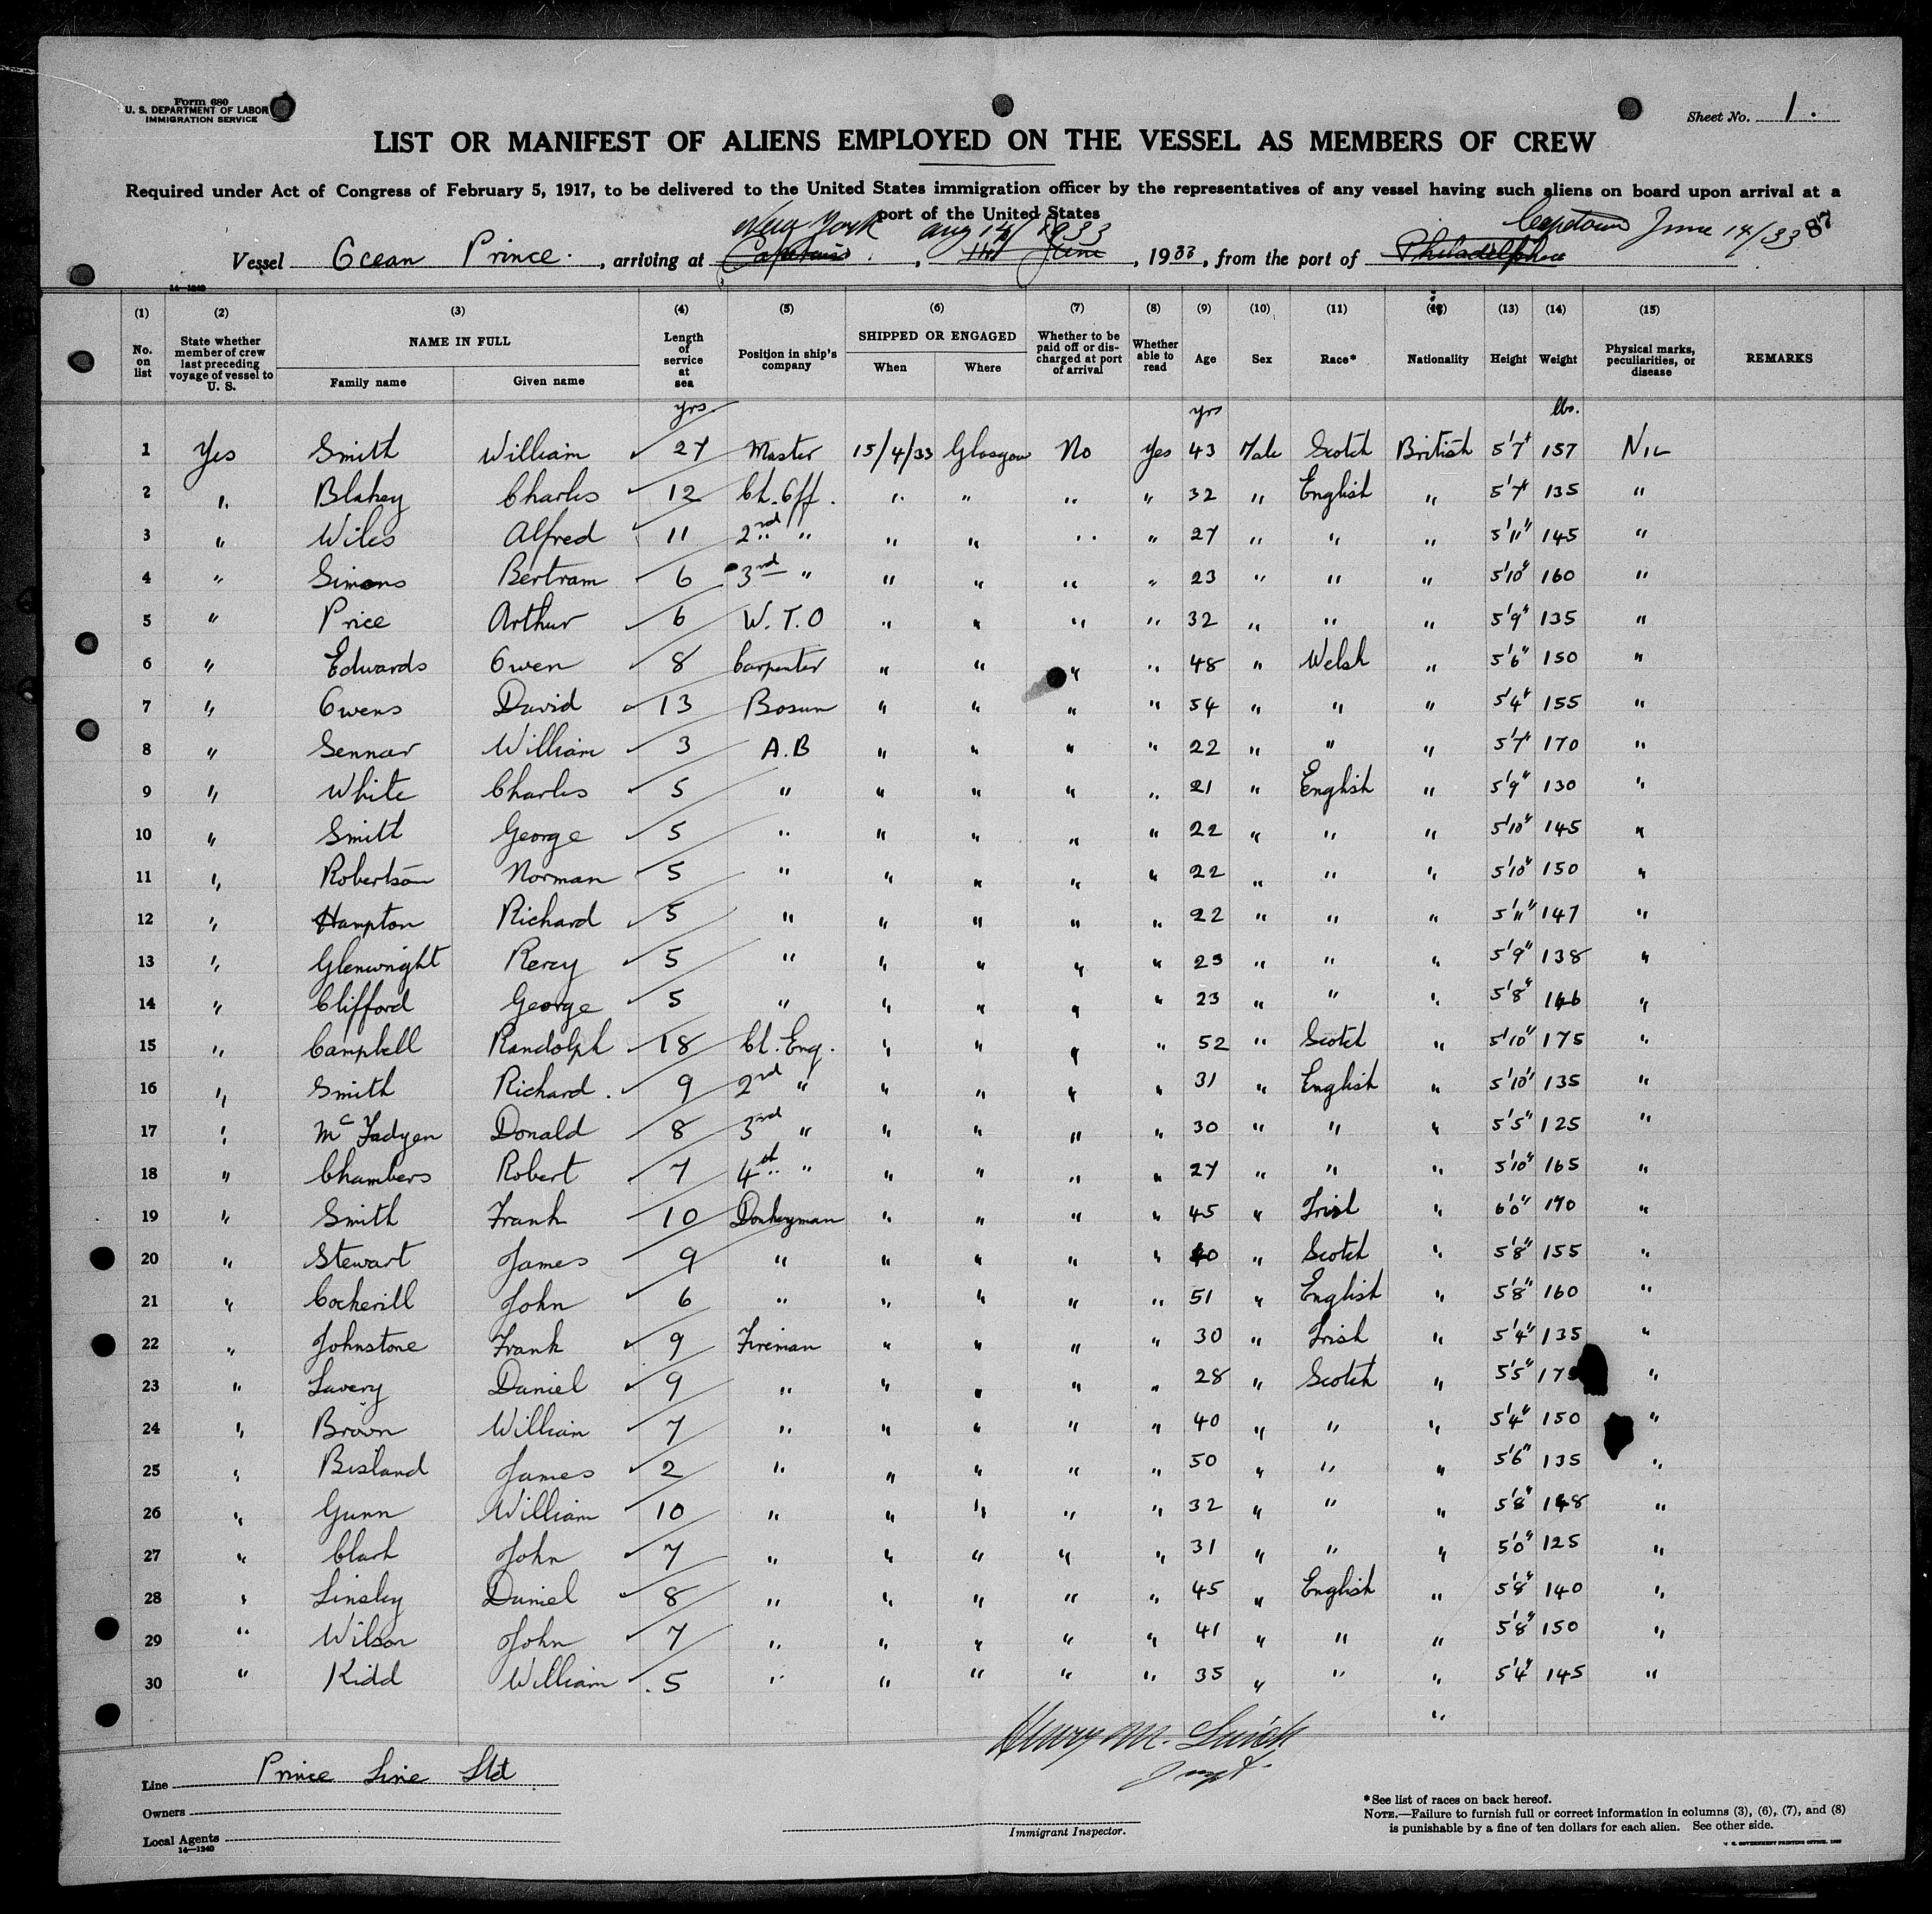 Form 680
U. S. DEPARTMENT OF LABOR
IMMIGRATION SERVICE
Sheet No. 1.
LIST OR MANIFEST OF ALIENS EMPLOYED ON THE VESSEL AS MEMBERS OF CREW
Required under Act of Congress of February 5, 1917, to be delivered to the United States immigration officer by the representatives of any vessel having such aliens on board upon arrival at a
port of the United States
New York Aug 14/1933 Capetown June 14/33 87
Vessel Ocean Prince. , arriving at , June , 1933 , from the port of Philadelphia
14—1240
(1) (2) (3) (4) (5) (6) (7) (8) (9) (10) (11) (12) (13) (14) (15)
No. on list State whether member of crew last preceding voyage of vessel to U. S. NAME IN FULL Family name Given name Length of service at sea Position in ship's company SHIPPED OR ENGAGED When Where Whether to be paid off or discharged at port of arrival Whether able to read Age Sex Race* Nationality Height Weight Physical marks, peculiarities, or disease REMARKS
yrs. yrs lbs.
1 Yes Smith William ✓ 27 Master 15/4/33 Glasgow No Yes 43 Male Scotch British 5'7" 157 Nil
2 " Blakey Charles ✓ 12 Ch. Off. " " " " 32 " English " 5'7" 135 "
3 " Wiles Alfred ✓ 11 2nd " " " " " 27 " " " 5'11" 145 "
4 " Simons Bertram ✓ 6 3rd " " " " " 23 " " " 5'10" 160 "
5 " Price Arthur ✓ 6 W.T.O " " " " 32 " " " 5'9" 135 "
6 " Edwards Owen ✓ 8 Carpenter " " " " 48 " Welsh " 5'6" 150 "
7 " Owens David ✓ 13 Bosun " " " " 54 " " " 5'4" 155 "
8 " Sennar William ✓ 3 A.B " " " " 22 " " " 5'7" 170 "
9 " White Charles ✓ 5 " " " " " 21 " English " 5'9" 130 "
10 " Smith George ✓ 5 " " " " " 22 " " " 5'10" 145 "
11 " Robertson Norman ✓ 5 " " " " " 22 " " " 5'10" 150 "
12 " Hampton Richard ✓ 5 " " " " " 22 " " " 5'11" 147 "
13 " Glenwright Percy ✓ 5 " " " " " 23 " " " 5'9" 138 "
14 " Clifford George ✓ 5 " " " " " 23 " " " 5'8" 146 "
15 " Campbell Randolph ✓ 18 Ch. Eng. " " " " 52 " Scotch " 5'10" 175 "
16 " Smith Richard. ✓ 9 2nd " " " " " 31 " English " 5'10" 135 "
17 " McFadyen Donald ✓ 8 3rd " " " " " 30 " " " 5'5" 125 "
18 " Chambers Robert ✓ 7 4th " " " " " 27 " " " 5'10" 165 "
19 " Smith Frank ✓ 10 Donkeyman " " " " 45 " Irish " 6'0" 170 "
20 " Stewart James ✓ 9 " " " " " 40 " Scotch " 5'8" 155 "
21 " Cockerill John ✓ 6 " " " " " 51 " English " 5'8" 160 "
22 " Johnstone Frank ✓ 9 Fireman " " " " 30 " Irish " 5'4" 135 "
23 " Lavery Daniel ✓ 9 " " " " " 28 " Scotch " 5'5" "
24 " Brown William ✓ 7 " " " " " 40 " " " 5'4" 150 "
25 " Bisland James ✓ 2 " " " " " 50 " " " 5'6" 135 "
26 " Gunn William ✓ 10 " " " " " 32 " " " 5'8" 148 "
27 " Clark John ✓ 7 " " " " " 31 " " " 5'0" 125 "
28 " Linsley Daniel ✓ 8 " " " " " 45 " English " 5'8" 140 "
29 " Wilson John ✓ 7 " " " " " 41 " " " 5'8" 150 "
30 " Kidd William ✓ 5 " " " " " 35 " " " 5'4" 145 "
"
Henry M.
Line Prince Line Ltd.
Owners
Local Agents
14—1240
Immigrant Inspector.
*See list of races on back hereof.
NOTE.—Failure to furnish full or correct information in columns (3), (6), (7), and (8)
is punishable by a fine of ten dollars for each alien. See other side.
U. S. GOVERNMENT PRINTING OFFICE.